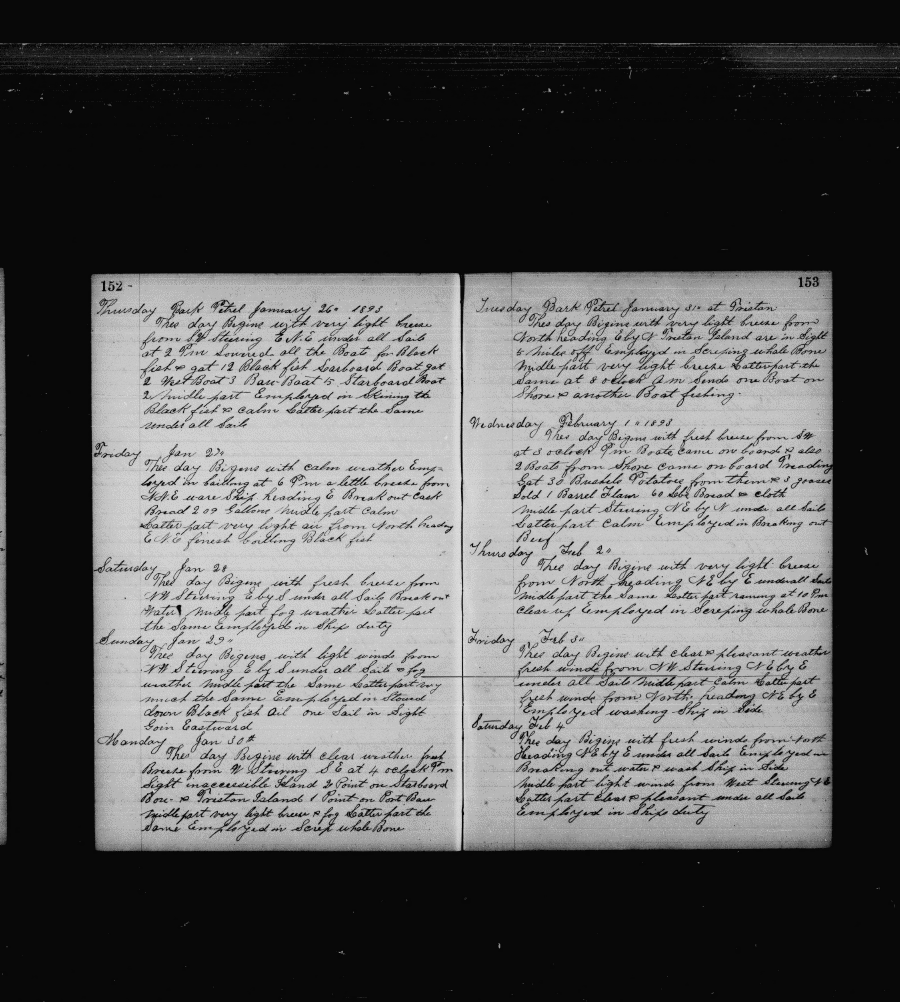 152
Thursday Bark Petrel January 26" 1893
Thes day Bigins with very light breese
from SW Steering E.N.E under all Sails
at 2 Pm Lowred all the Boats for Black
fish & gat 12 Black fish Larboard Boat gat
2 Wast Boat 3 Baw Boat 5 Starboard Boat
2 Midle part Employed in Skining the
Black fish & Calm Latter part the Same
under all Sails
Friday Jan 27"
Thes day Bigens with calm weather Emp-
loyed in boilling at 6 Pm a lettle breese from
N.N.E ware Ship heading E Break out Cask
Bread 209 Gallons Midle part Calm
Latter part very light air from North heading
E N E finesh boilling Black fish
Saturday Jan 28
Thes day Bigins with fresh breese from
NW Steering E by S under all Sails Break out
Water Midle part fog weather Latter part
the Same Employed in Ship duty
Sunday Jan 29"
Thes day Bigins with light winds from
NW Steering E by S under all Sails & fog
weather Midle part the Same Latter part very
much the Same Employed in Stowed
down Black fish Oil one Sail in Sight
Goin Eastward
Monday Jan 30th
Thes day Bigins with clear weather fresh
Breese from W Steering S E at 4 oclock Pm
Sight inaccessible Iland 2 Point on Starboard
Bow & Trestan Island 1 Point on Port Baw
Midle part very light breese & fog Latter part the
Same Employed in Screp whale Bone
153
Tuesday Bark Petrel January 31" at Tristan
Thes day Bigins with very light breese from
North heading E by N Trestan Island are in Sight
5 Miles off Employed in Screping whale Bone
Midle part very light breese Latter part the
Same at 8 oclock Am Sends one Boat on
Shore & another Boat fishing.
Wednesday February 1" 1893
Thes day Bigins with fresh breese from SW
at 3 oclock Pm Boats came on board & also
2 Boats from Shore came on board Treading
Gat 30 Bushels Potatoes from them & 3 geases
Sold 1 Barrel Flawr 60 Lbs Bread & cloth
Midle part Steering NE by N under all Sails
Latter part Calm Employed in Breaking out
Beef
Thursday Feb 2"
Thes day Bigins with very light breese
from North heading NE by E under all Sails
Midle part the Same Latter part raining at 10 Pm
clear up Employed in Screping whale Bone
Friday Feb 3"
Thes day Begins with clear & pleasant weather
fresh winds from NW Steering NE by E
under all Sails Midle part Calm Latter part
fresh winds from North. heading NE by E
Employed washing Ship in Side
Saturday Feb 4
Thes day Bigins with fresh winds from North
Heading NE by E under all Sails Employed in
Breaking out water & wash Ship in Side
Midle part light winds from West Steering NE
Latter part clear & pleasant under all Sails
Employed in Ships duty